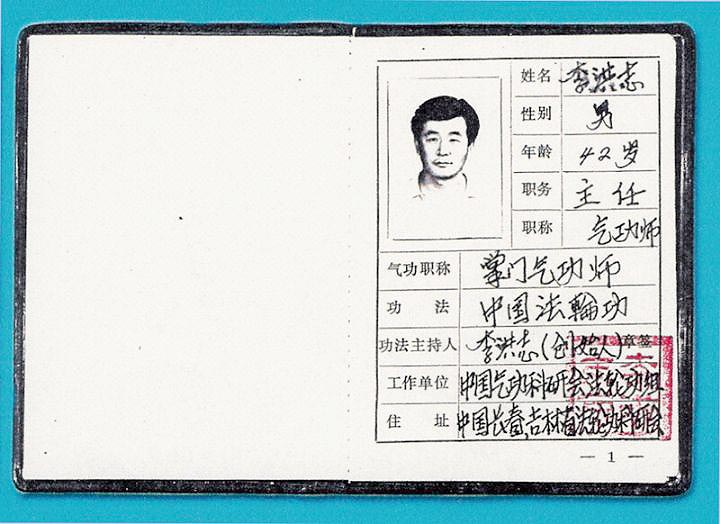 姓名 李洪志
性别 男
年龄 42岁
职务 主任
职称 气功师
气功职称 掌门气功师
功 法 中国法輪功
功法主持人 李洪志(创始人) 章签
工作单位 中国气功科研会法轮功组
住 址 中国长春,吉林省法轮功科研会
— 1 —